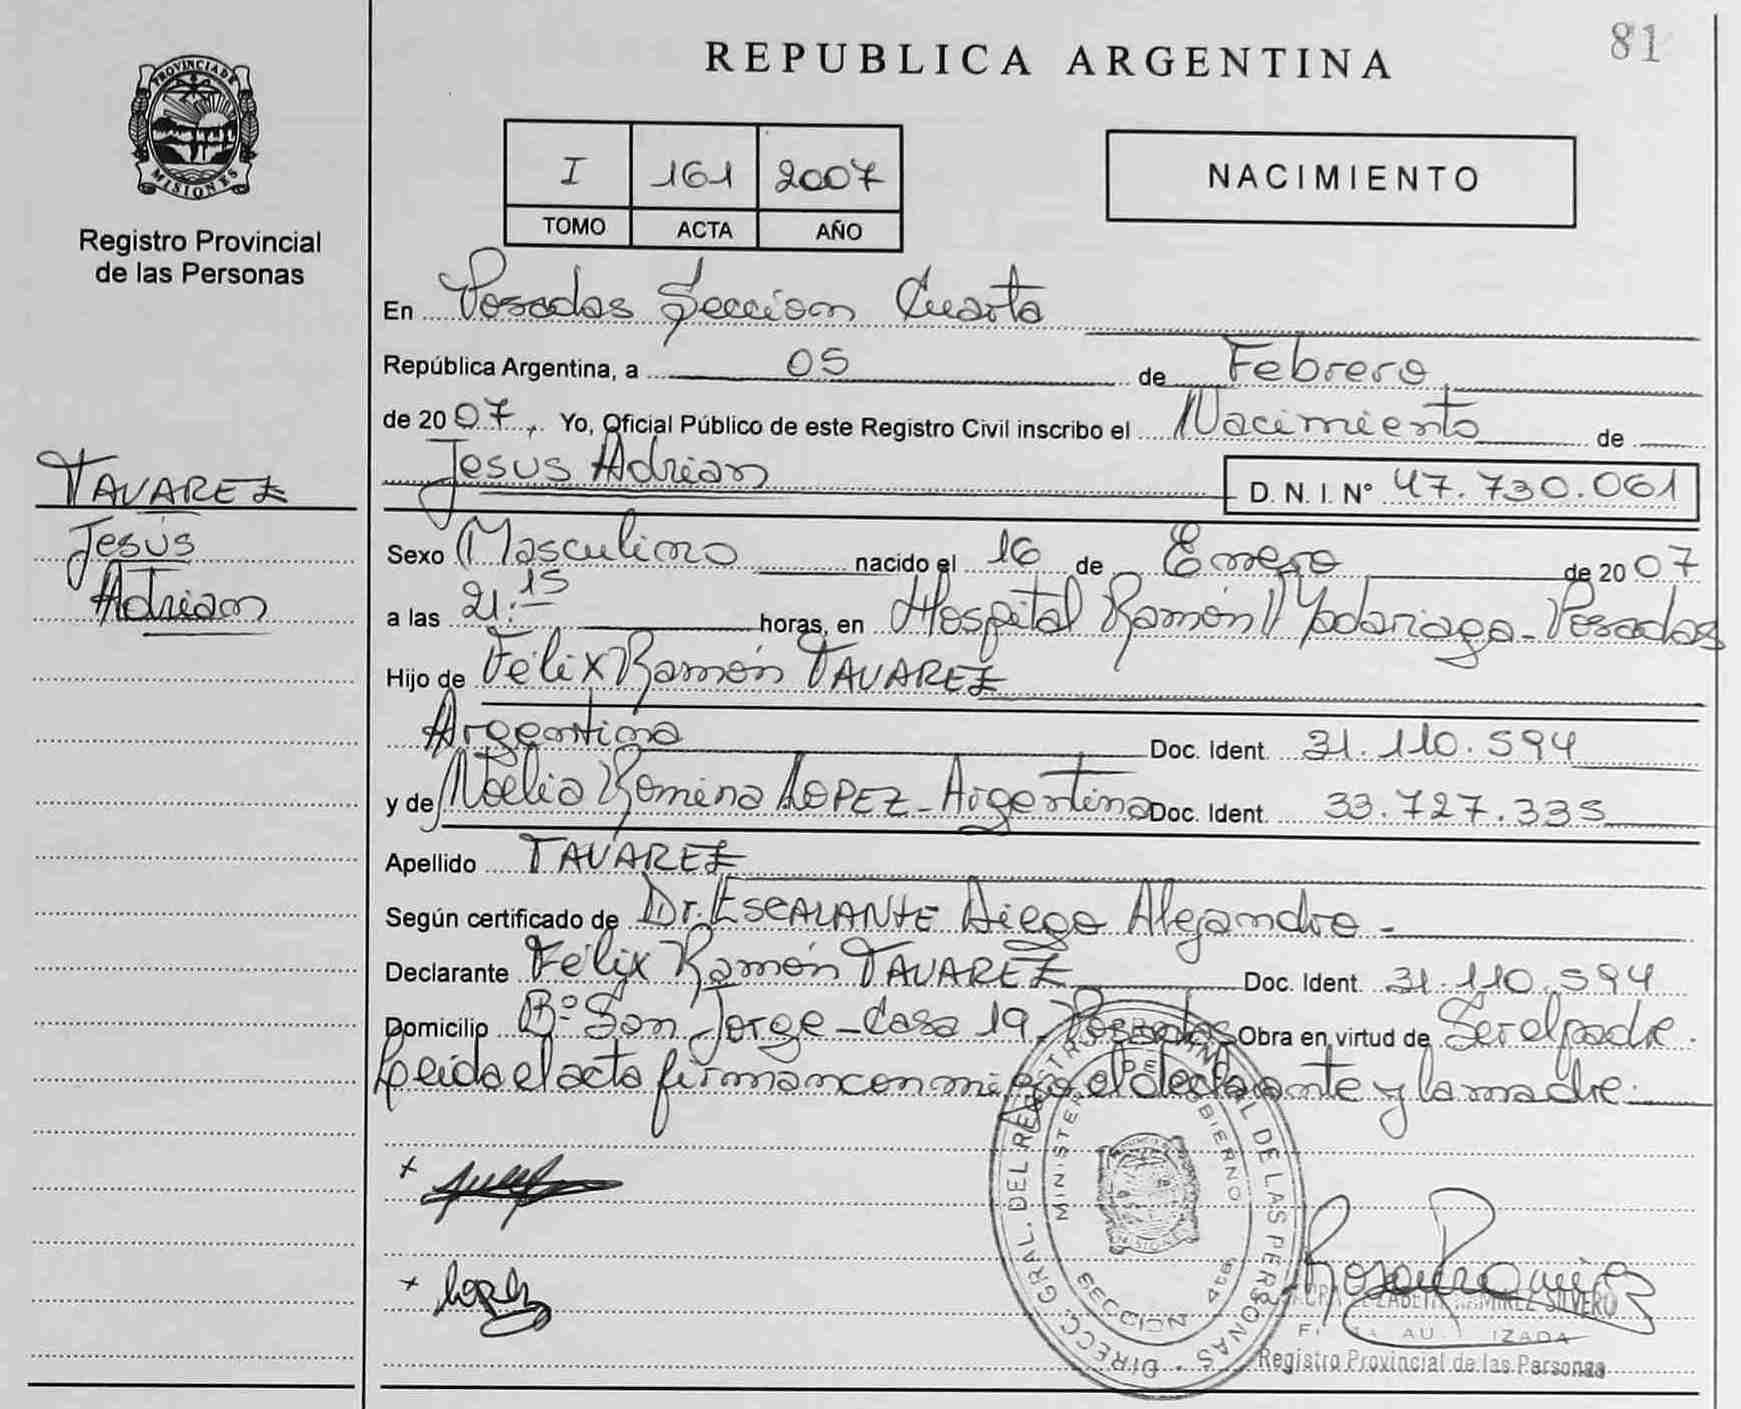 81
REPUBLICA ARGENTINA
PROVINCIA DE
MISIONES
Registro Provincial
de las Personas
I 161 2007
TOMO ACTA AÑO
NACIMIENTO
En Posadas Sección Cuarta
República Argentina, a 05 de Febrero
de 2007, Yo, Oficial Público de este Registro Civil inscribo el Nacimiento de
Jesús Adrian D. N. I. Nº 47.730.061
TAVAREZ
Jesús
Adrian
Sexo Masculino nacido el 16 de Enero de 2007
a las 21:15 horas, en Hospital Ramón Madariaga - Posadas
Hijo de Félix Ramón TAVAREZ
Argentina Doc. Ident. 31.110.594
y de Noelia Romina LOPEZ - Argentina Doc. Ident. 33.727.335
Apellido TAVAREZ
Según certificado de Dr. ESCALANTE Diego Alejandro -
Declarante Félix Ramón TAVAREZ Doc. Ident. 31.110.594
Domicilio Bº San Jorge - Casa 19 - Posadas Obra en virtud de Ser el padre.
Leida el acta firman conmigo el declarante y la madre.
DIRECC. GRAL. DEL REGISTRO PROVINCIAL DE LAS PERSONAS
MINISTERIO DE GOBIERNO
MISIONES
SECCIÓN 4ta
+
+ Lopez
RAMIREZ SILVERO
Registro Provincial de las Personas